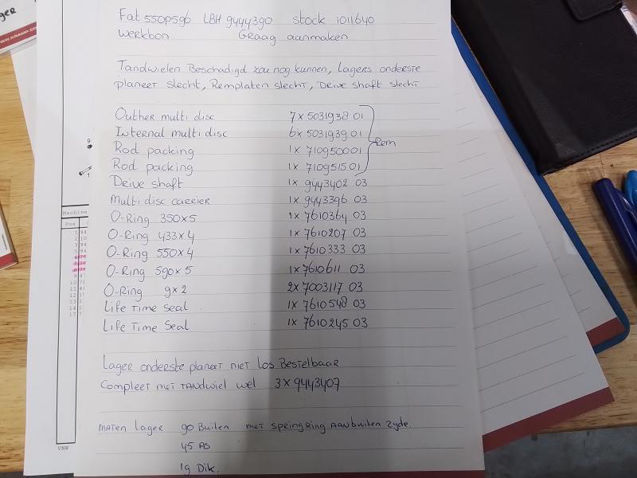 Fat 550p596 LBH 9444390 stock 1011640
Werkbon Graag aanmaken
Tandwielen Beschadigd zou nog kunnen, Lagers onderste
planeet slecht, Remplaten slecht, Deive shaft slecht
Outher multi disc 7x 5031938 01
Internal multi disc 6x 5031939 01
Rod packing 1x 710950001
Rod packing 1x 710951501
Rem
Deive shaft 1x 9443402 03
Multi disc carrier 1x 9443396 03
O-Ring 350x5 1x 7610364 03
O-Ring 433x4 1x 7610207 03
O-Ring 550x4 1x 7610333 03
O-Ring 590x5 1x 7610611 03
O-Ring 9x2 2x 7003117 03
Life Time Seal 1x 7610548 03
Life Time Seal 1x 7610245 03
Lager onderste planeet niet los Bestelbaar
Compleet met tandwiel wel 3x 9443407
Maten Lager 90 Buiten met springring Aan buiten zyde
45 As
19 Dik.